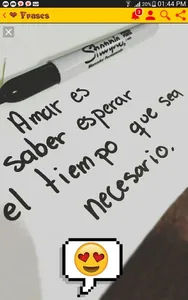 01:44 PM
Frases
2
Sharpie
Amar es
saber esperar
el tiempo que sea
necesario.